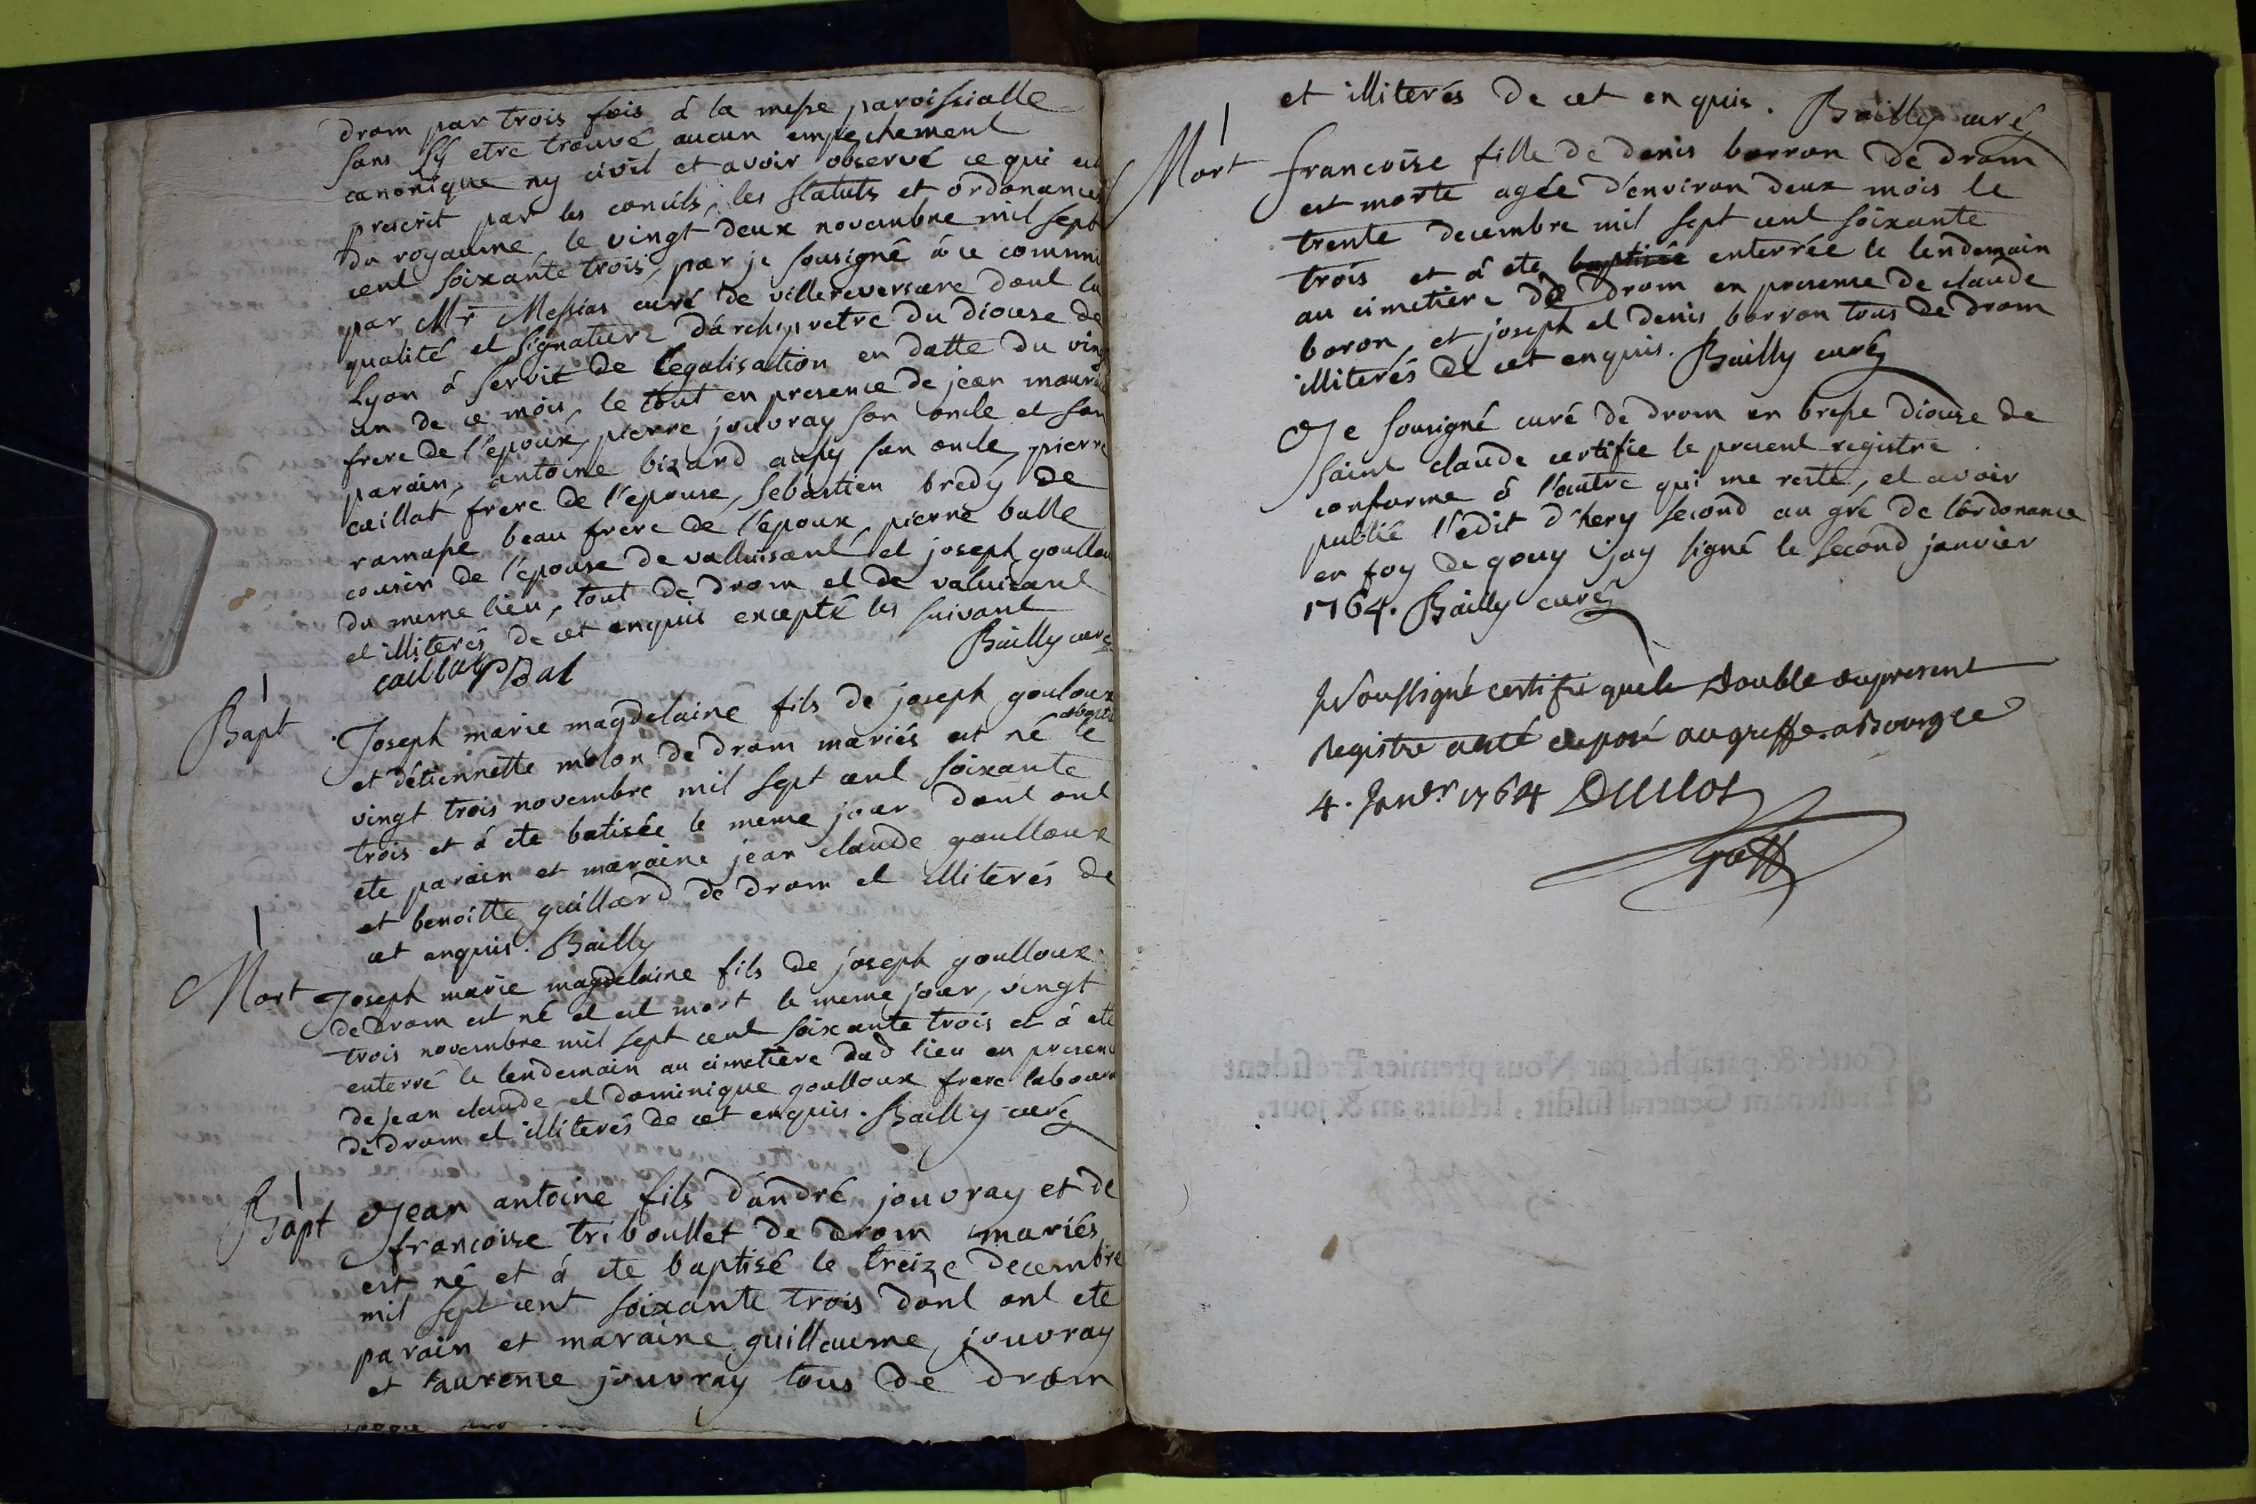 drom par trois fois á la messe paroissialle
sans sy etre trouvé aucun empechement
canonique ny civil et avoir observé ce qui est
prescrit par les concils, les statuts et ordonances
du royaume le vingt deux novembre mil sept
cent soixante trois, par je sousigné á ce commi
par Mr Messias curé de villereversure dont la
qualité et signature d'archipretre du diocese de
Lyon á servit de legalisation en datte du ving
un de ce mois, le tout en presence de jean mauri
frere de l'epoux, pierre jouvray son oncle et son
parain, antoine bizard aussy son oncle, pierre
caillat frere de l'epouse, sebastien bredy de
ramasse beau frere de l'epoux, pierre balle
cousin de l'epouse de valuisant et joseph goullou
du meme lieu, tout de drom et de valuisant
et illiterés de cet enquis excepté les suivant
caillat Bal Bailly curé
Bapt Joseph marie magdelaine fils de joseph gouloux
et d'etiennette molon de drom mariés est né le
vingt trois novembre mil sept cent soixante
trois et á ete batisée le meme jour dont ont
ete parain et maraine jean claude goulloux
et benoitte guillard de drom et illiterés de
cet enquis. Bailly
Mort Joseph marie magdelaine fils de joseph goulloux
de drom est né et est mort le meme jour, vingt
trois novembre mil sept cent soixante trois et á ete
enterré le lendemain au cimetiere dud lieu en presen
de jean claude et dominique goulloux frere laboure
de drom et illiterés de cet enquis. Bailly curé
Bapt Jean antoine fils d'andré jouvray et de
francoise triboullet de drom mariés
est né et á ete baptisé le treize decembre
mil sept cent soixante trois dont ont ete
parain et maraine guillaume jouvray
et laurence jouvray tous de drom
et illiterés de cet enquis. Bailly curé
Mort francoise fille de denis borron de drom
est morte agée d'environ deux mois le
trente decembre mil sept cent soixante
trois et á ete baptisée enterrée le lendemain
au cimetiere de drom en presence de claude
boron, et joseph et denis borron tous de drom
illiterés de cet enquis. Bailly curé
Je sousigné curé de drom en bresse diocese de
saint claude certifie le present registre
conforme á l'autre qui me reste, et avoir
publié l'edit d'hery second au gré de l'ordonance
en foy de quoy j'ay signé le second janvier
1764. Bailly curé
Je soussigné certifie que le double du present
Registre a eté deposé au greffe a Bourg ce
4. Janvr 1764 Duclos
Greff
Cotté & paraphés par Nous premier President
& Lieutenant General susdit, lesdits an & jour.